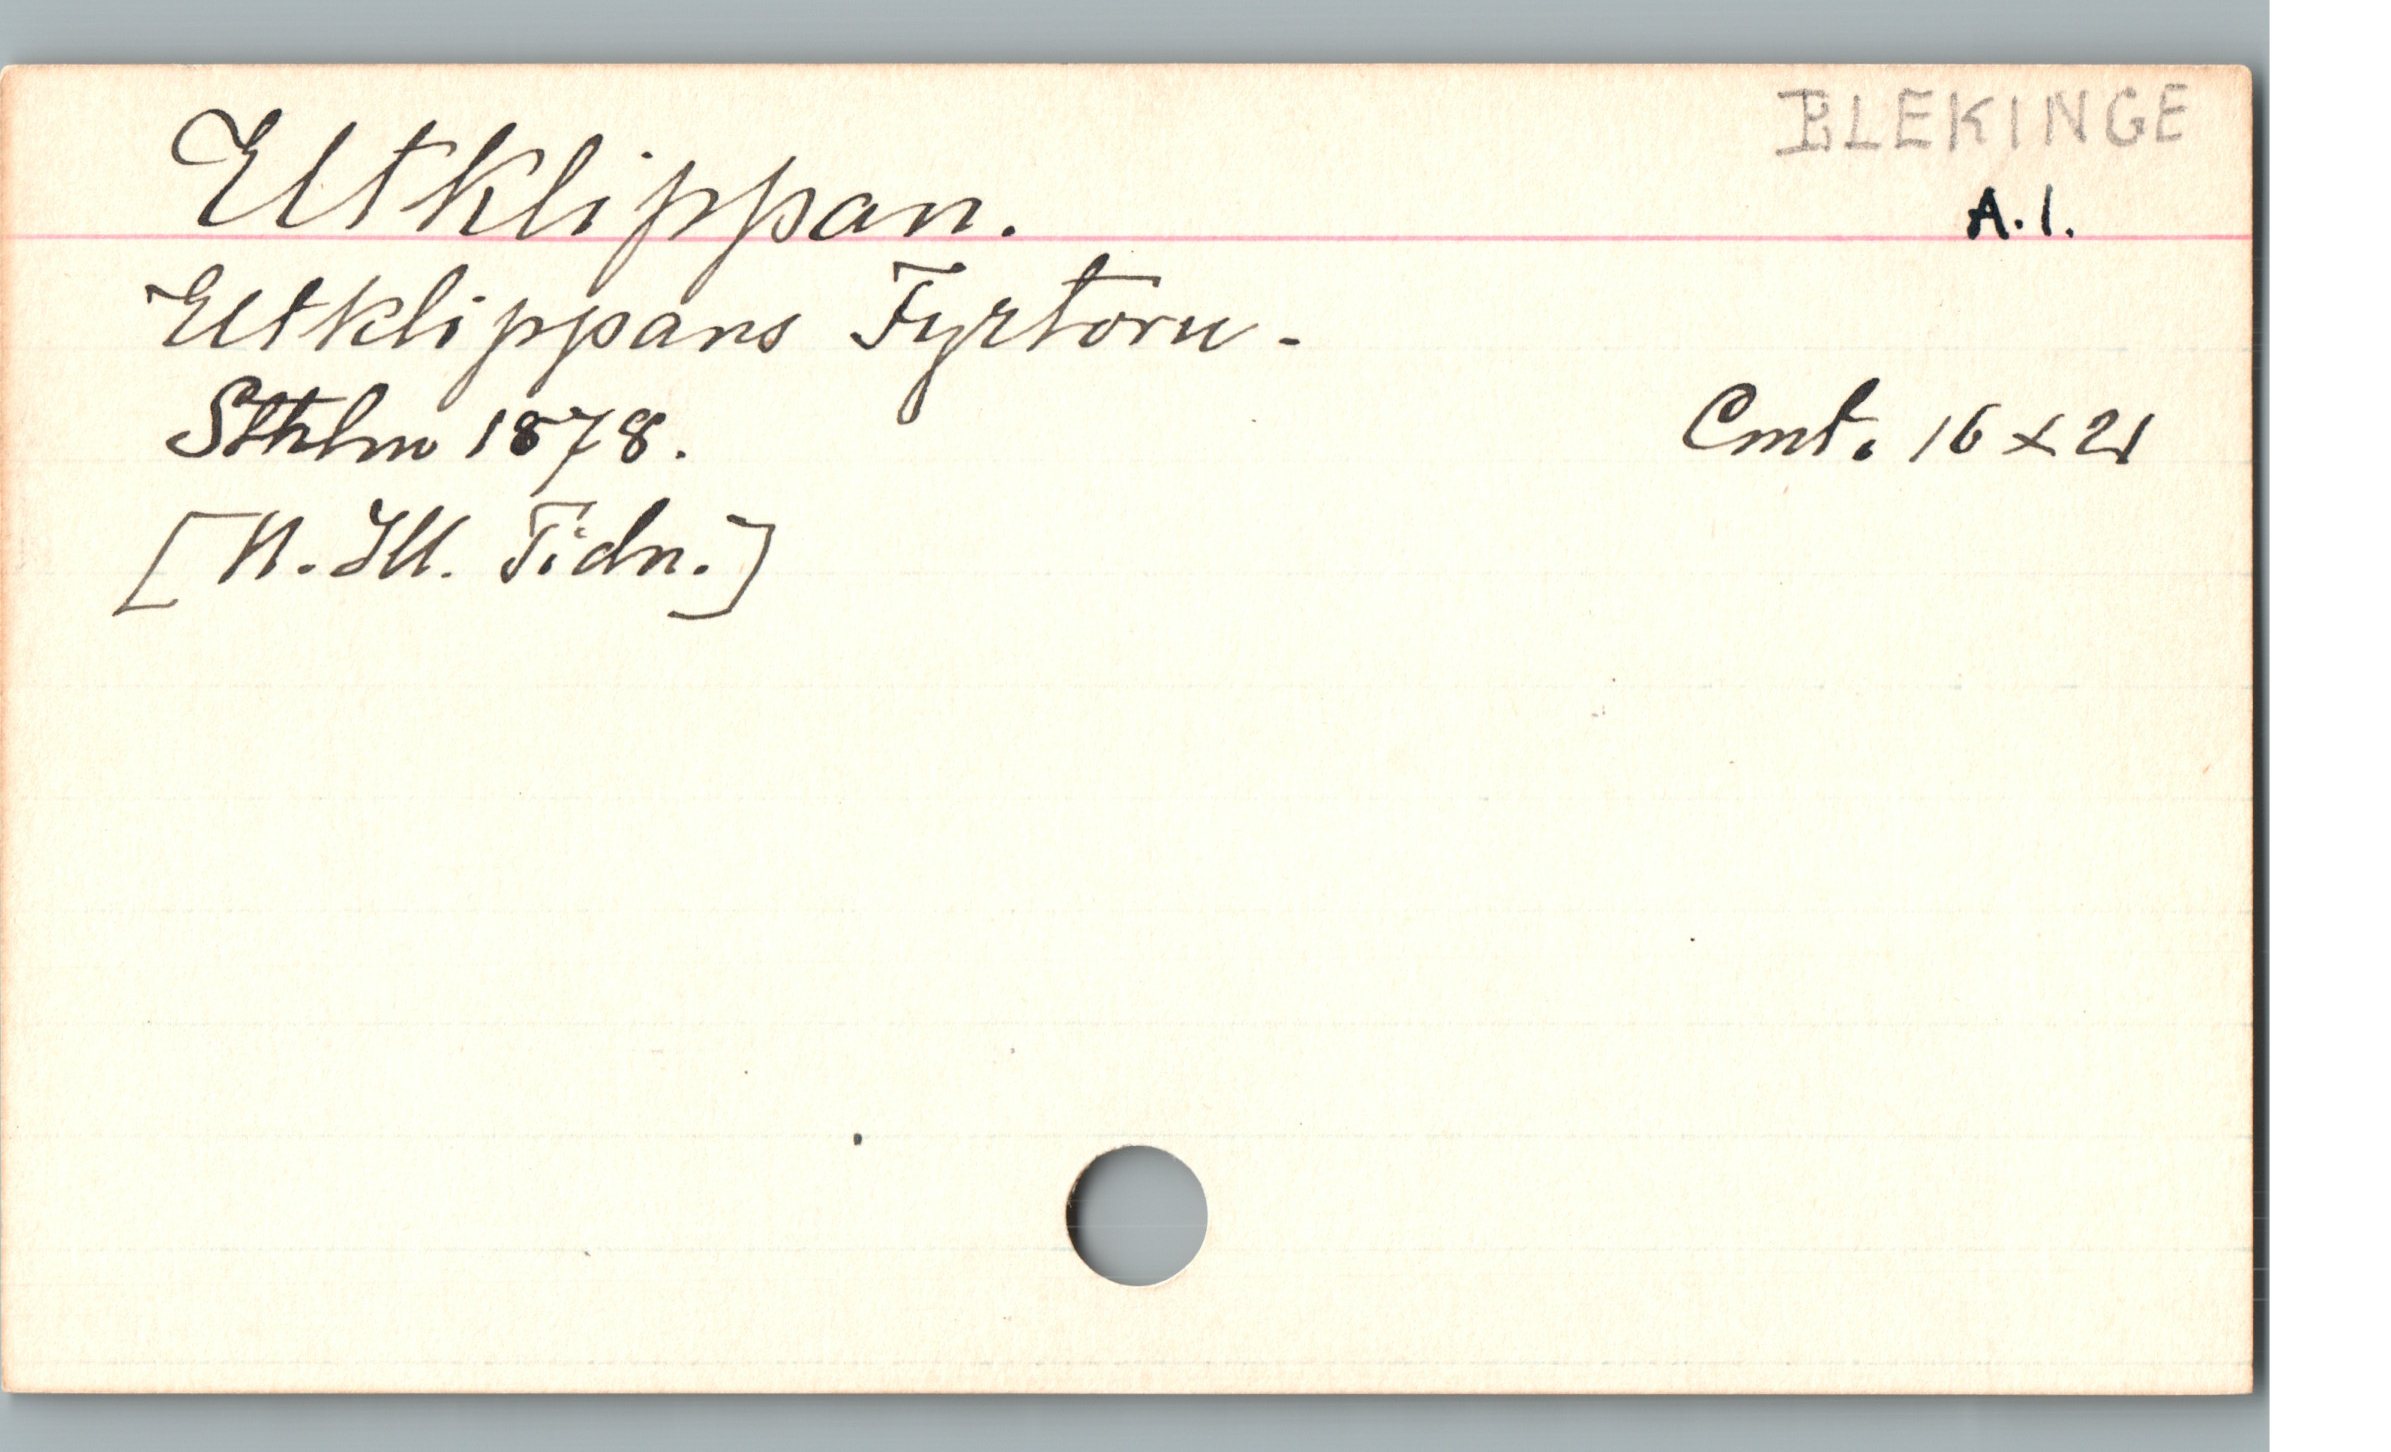 BLEKINGE
Utklippan.
A.1.
Utklippans Fyrtorn -
Sthlm 1878.
Cmt. 16 x 21
[N. Ill. Tidn.]